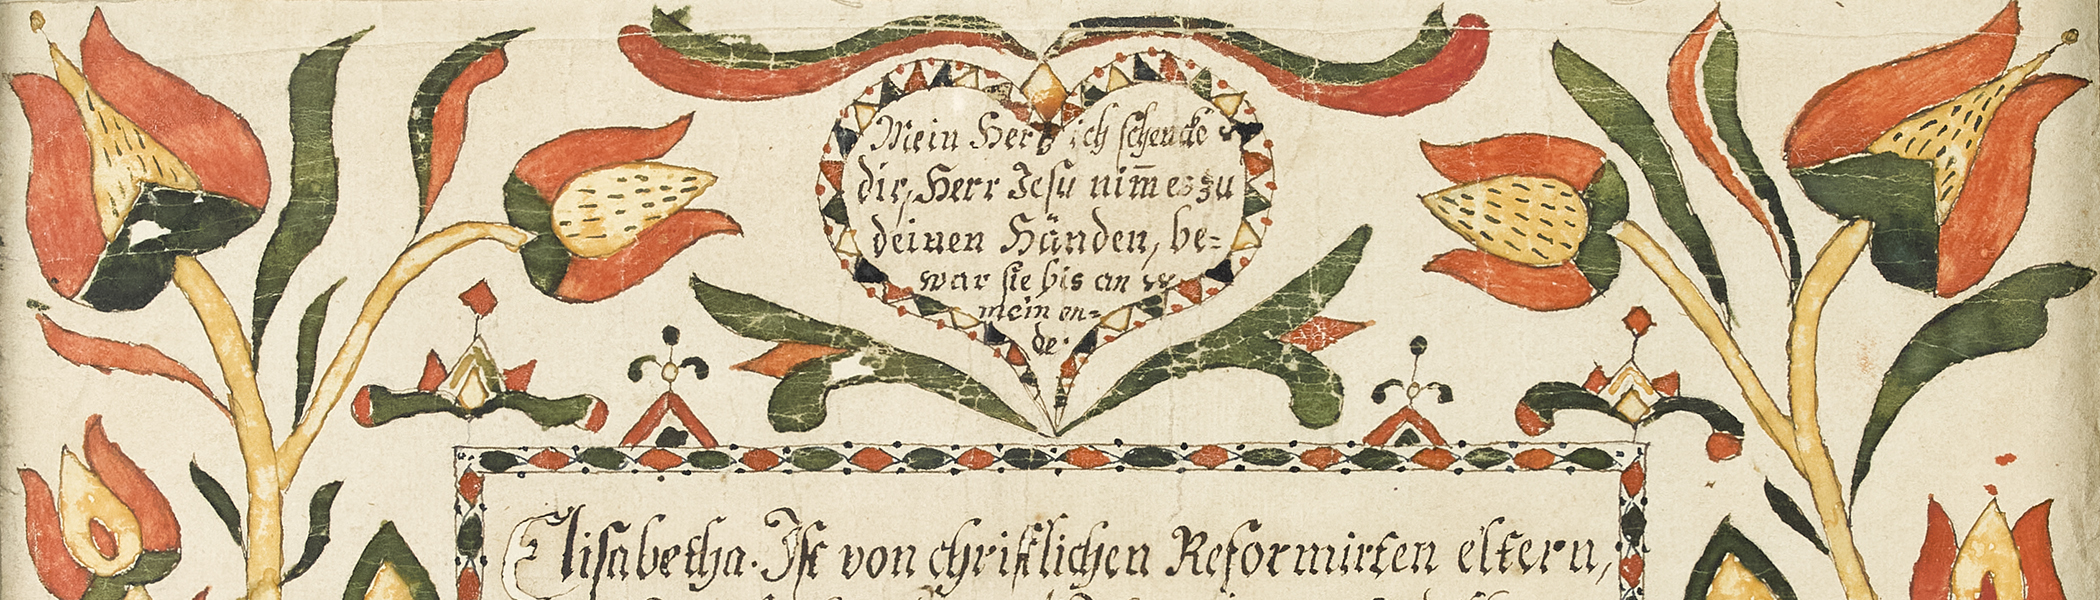 Mein Herz ich schencke
dir, Herr Jesu nim̅ es zu
deinen Händen, be=
war sie bis an
mein en=
de.
Elisabetha. Ist von christlichen Reformirten eltern,